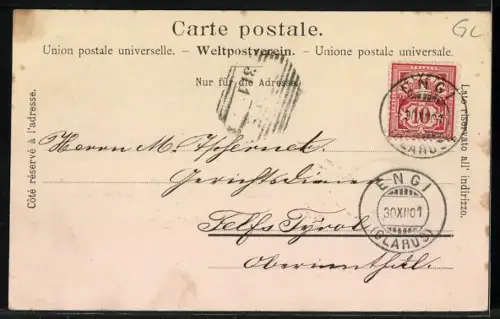 Carte postale.
GL
Union postale universelle. – Weltpostverein. – Unione postale universale.
Nur für die Adresse
Côté réservé à l'adresse.
Lato riservato all' indirizzo.
10
ENGI
(GLARUS)
Herrn M.
Gerichtsdiener
ENGI
30XII01
(GLARUS)
Telfs Tyrol
Oberinnthal.